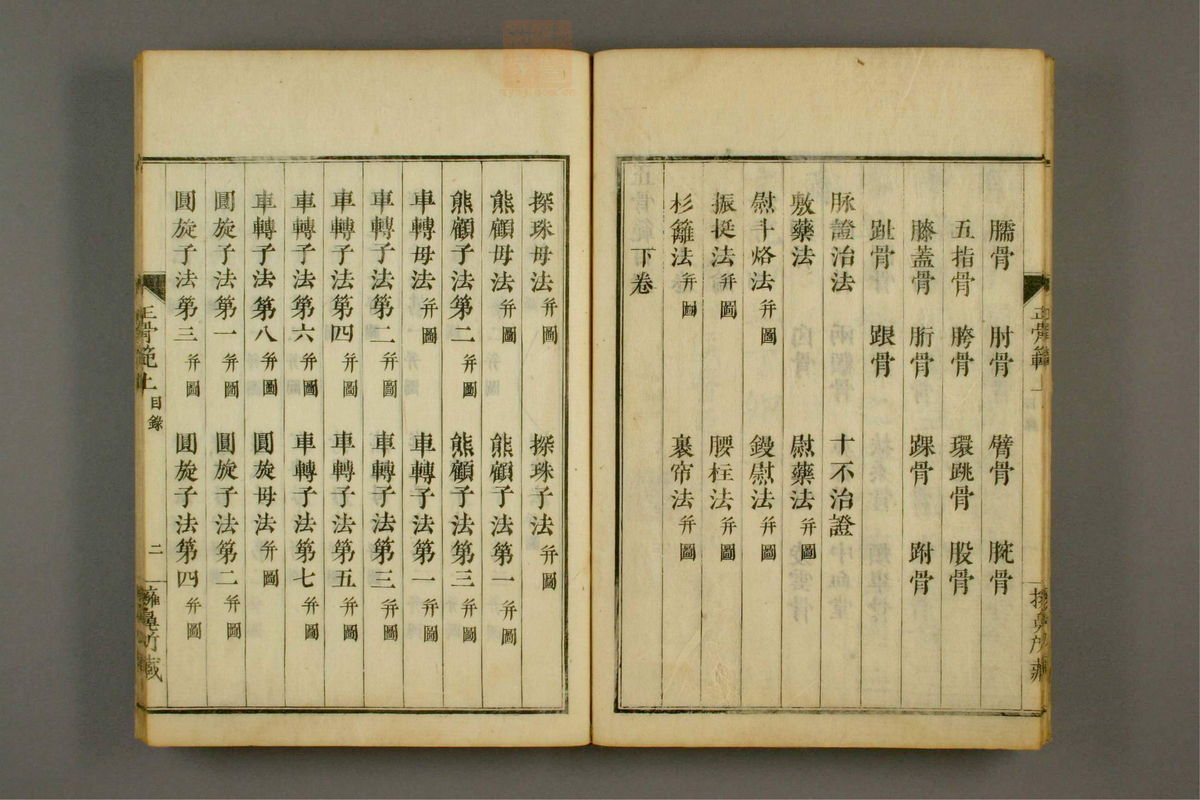 臑骨 肘骨 臂骨 腕骨
五指骨 胯骨 環跳骨 股骨
膝蓋骨 䯒骨 踝骨 跗骨
趾骨 跟骨
脉證治法 十不治證
敷藥法 慰藥法并圖
慰斗烙法并圖 鏝慰法并圖
振挺法并圖 腰柱法并圖
杉籬法并圖 裹帘法并圖
下卷
探珠母法并圖 探珠子法并圖
熊顧母法并圖 熊顧子法第一并圖
熊顧子法第二并圖 熊顧子法第三并圖
車轉母法并圖 車轉子法第一并圖
車轉子法第二并圖 車轉子法第三并圖
車轉子法第四并圖 車轉子法第五并圖
車轉子法第六并圖 車轉子法第七并圖
車轉子法第八并圖 圓旋母法并圖
圓旋子法第一并圖 圓旋子法第二并圖
圓旋子法第三并圖 圓旋子法第四并圖
正骨範上 目錄 二